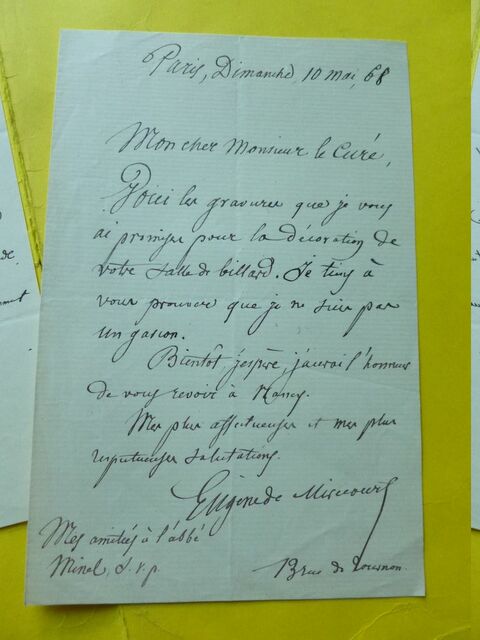 Paris, Dimanche, 10 mai, 68
Mon cher Monsieur le Curé,
Voici les gravures que je vous
ai promises pour la décoration de
votre salle de billard. Je tiens à
vous prouver que je ne suis pas
un gascon.
Bientôt j'espère, j'aurai l'honneur
de vous revoir à Nancy.
Mes plus affectueuses et mes plus
respectueuses salutations.
Eugène de Mirecourt
Mes amitiés à l'abbé
Minel, S. v. p.
rue de Tournon